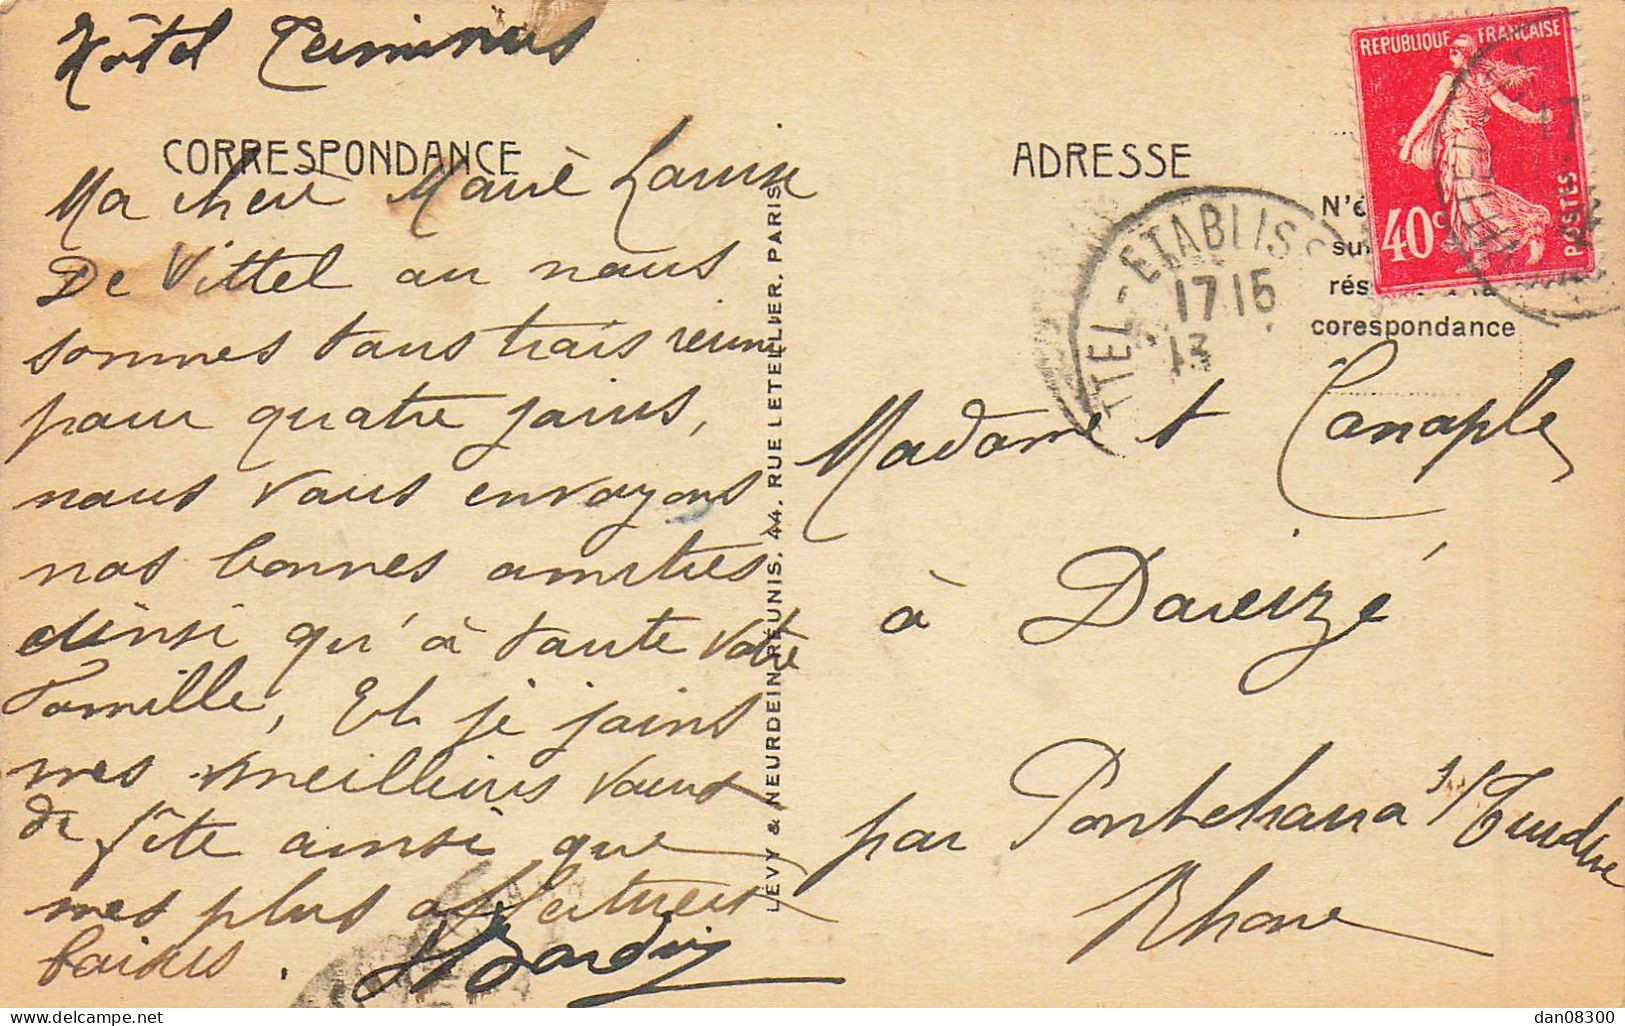 Hôtel Terminus
CORRESPONDANCE
Ma chere Marie Louise
De Vittel au nous
sommes tous trois reunis
pour quatre jours,
nous vous envoyons
nos bonnes amities
ainsi qu'à toute votre
famille, Et je joins
mes meilleurs voeux
de fête ainsi que
mes plus affectueux
baisers.
LÉVY & NEURDEIN RÉUNIS, 44, RUE LETELLIER, PARIS
ADRESSE
REPUBLIQUE FRANÇAISE
40c
POSTES
TTEL-ETABLISS
17 15
13
N'é
su
rés
corespondance
Madame Canaple
à Dareizé
par Pontcharra s/Turdine
Rhone
delcampe.net
dan08300